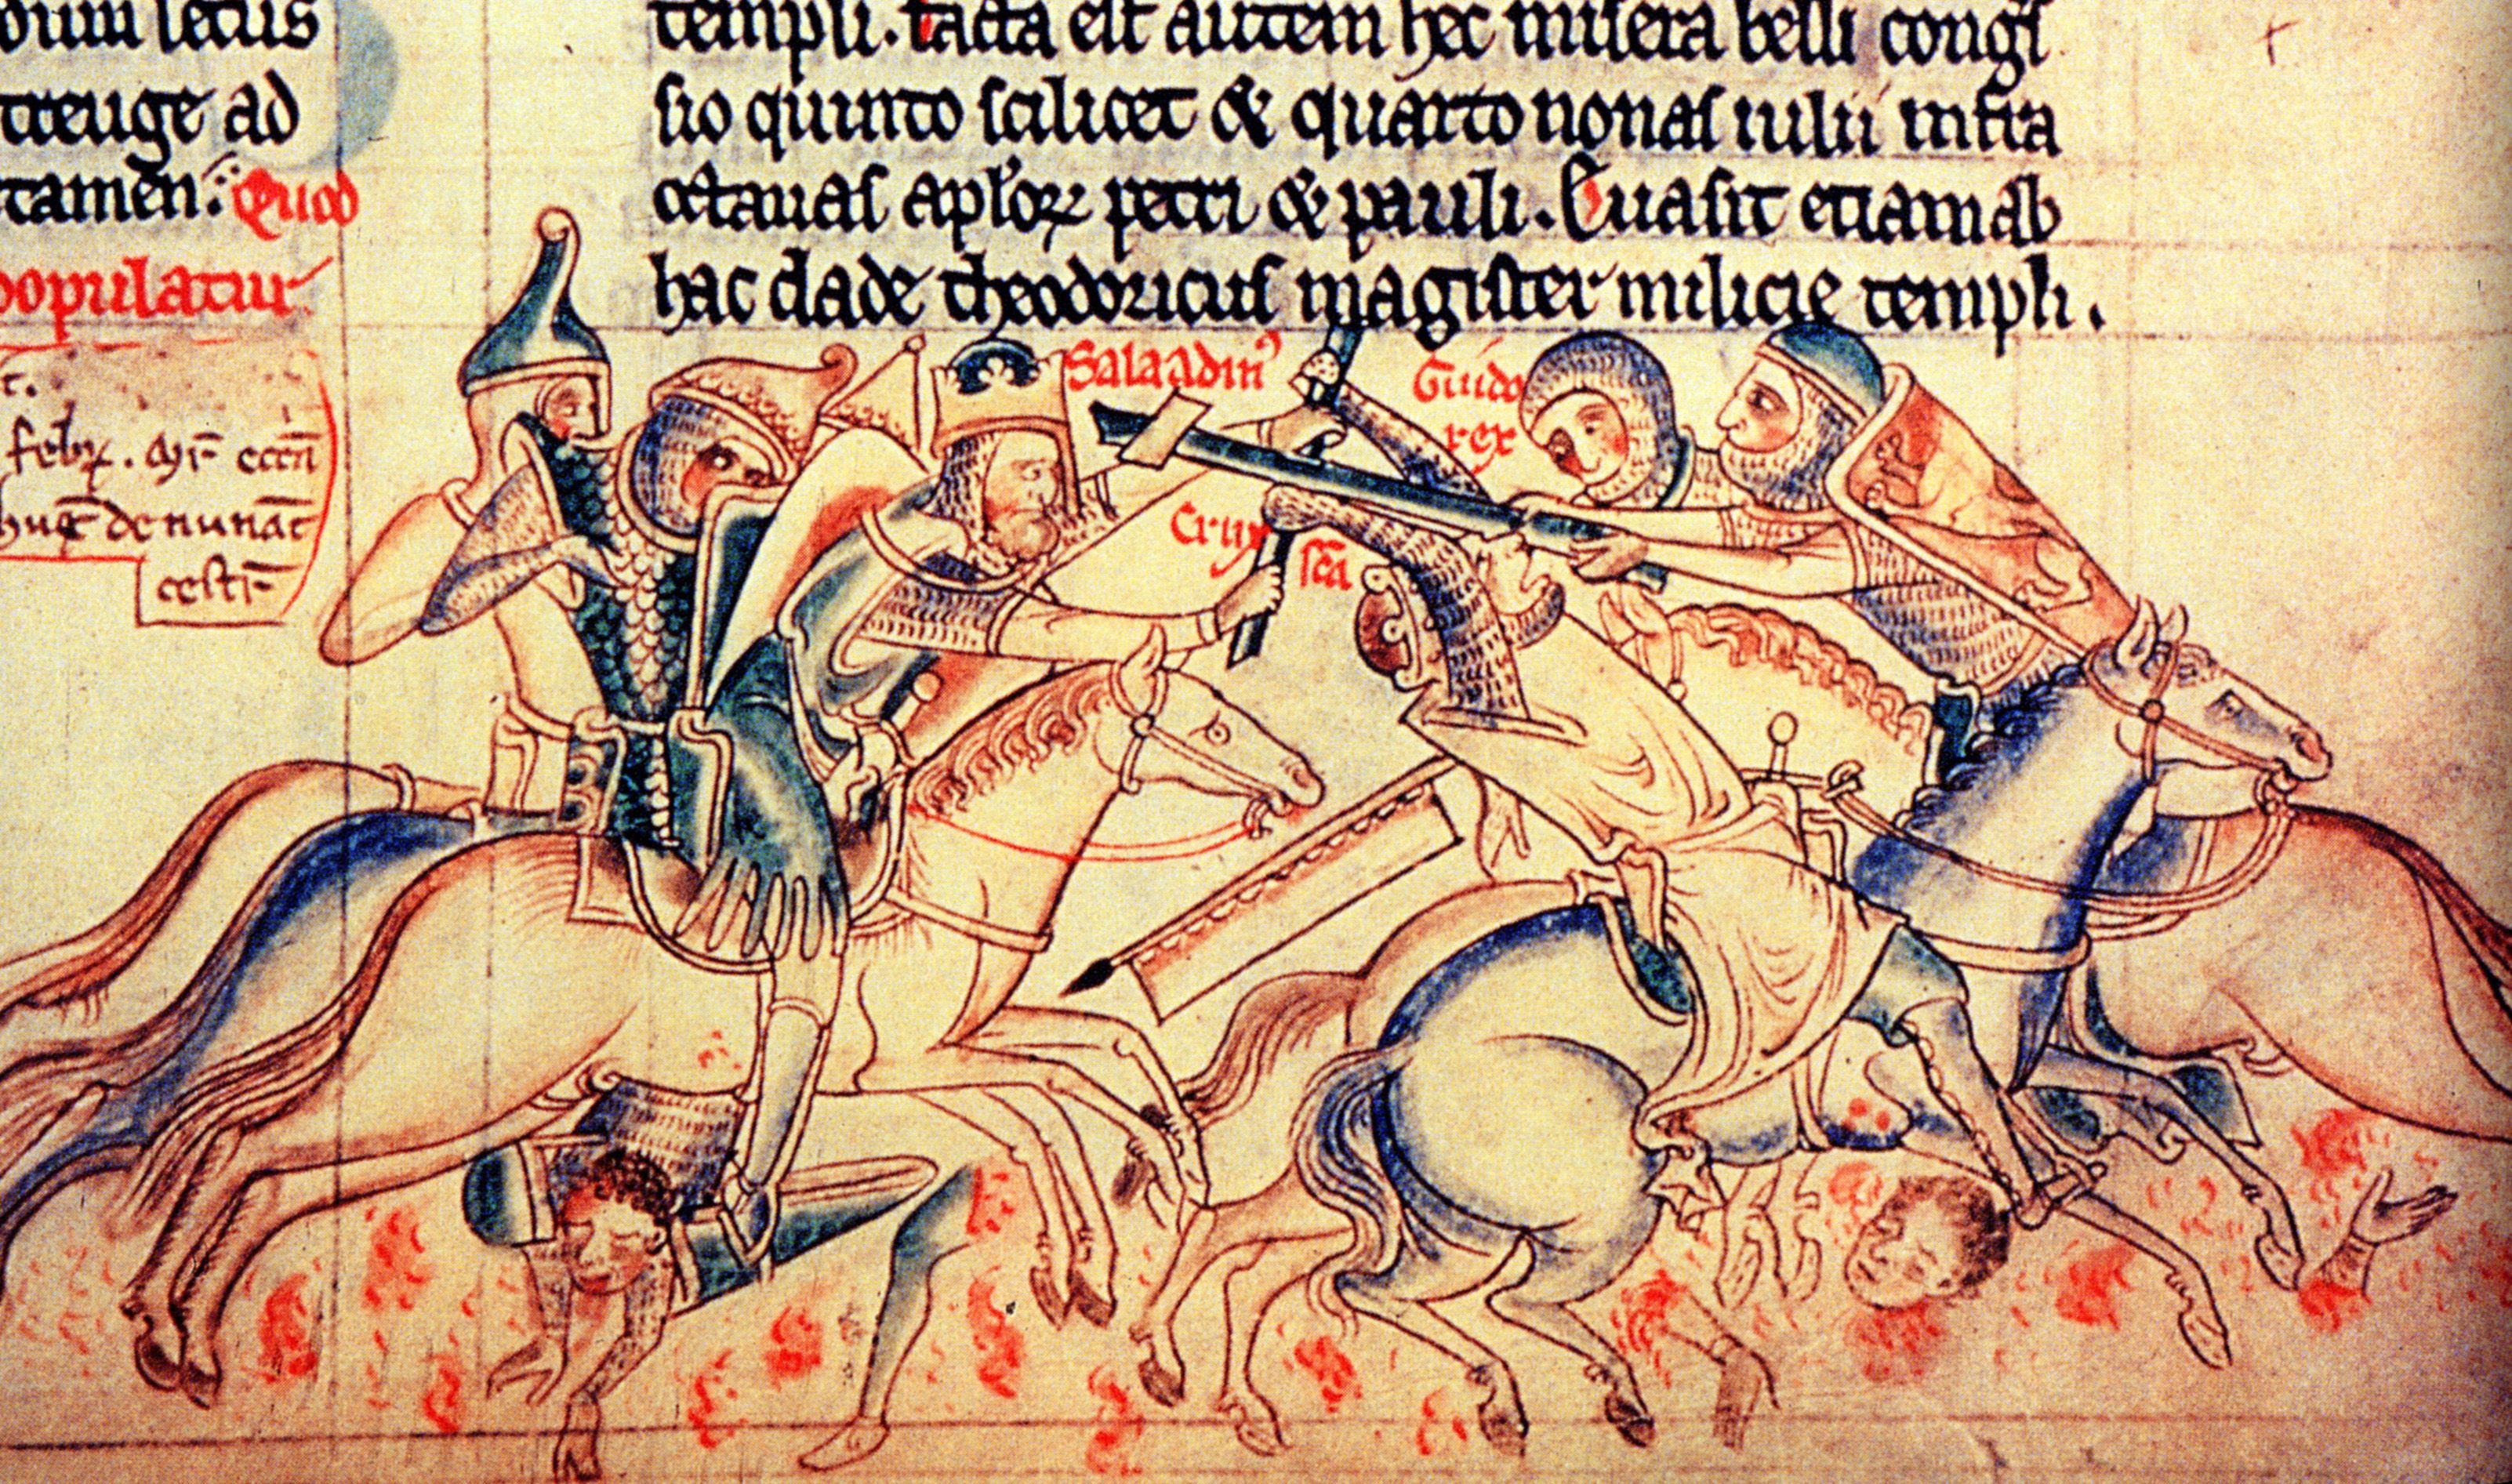 dium letus
treuge ad
tamen. Quod
populatur
febr. ecen
de nunat
cesti
templi. facta est autem hec misera belli congres
sio quinto scilicet & quarto nonas iulii infra
octauas aplor petri & pauli. Euasit etiam ab
hac clade theodoricus magister milicie templi.
Salaadin
Guido
rex
Crux sca